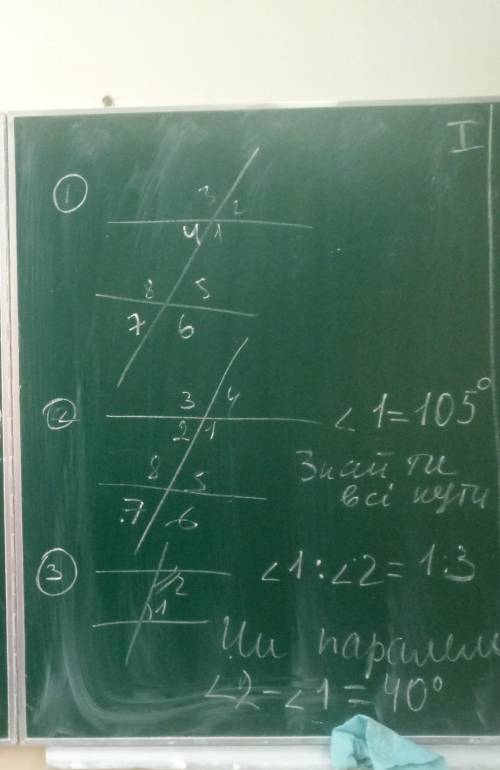 I
1
3 2
4 1
8 5
7 6
2
3 4
2 1
8 5
7 6
∠1=105°
Знайти
всі кути
3
2
1
∠1:∠2=1:3
Чи паралел
∠2-∠1=40°